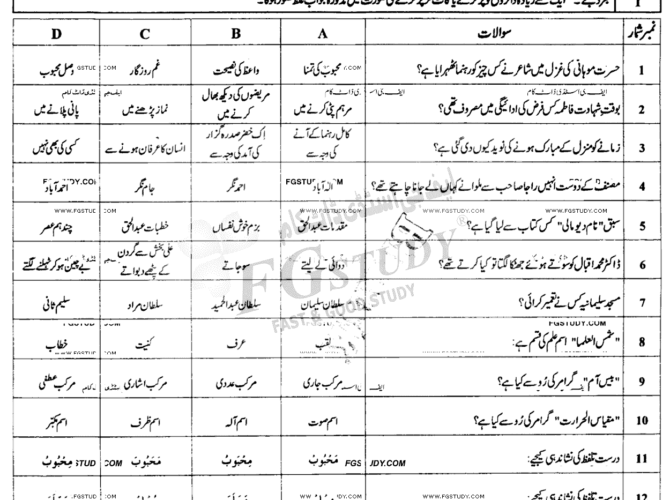 نمبر شمار سوالات A B C D
1 حسرت موہانی کی غزل میں شاعر نے کس چیز کو رہنما ٹھہرایا ہے؟ محبوب کی تمنا واعظ کی نصیحت غم روزگار وصل محبوب
2 بوقتِ شہادت فاطمہ کس فرض کی ادائیگی میں مصروف تھی؟ مرہم پٹی کرنے میں مریضوں کی دیکھ بھال کرنے میں نماز پڑھنے میں پانی پلانے میں
3 زمانے کو منزل کے مبارک ہونے کی نوید کیوں دی گئی ہے؟ کامل رہنما کے آنے کی وجہ سے اِک خضر صدرہ گزار کی آمد کی وجہ سے انسان کا عرفان ہونے سے کسی کی بھی نہیں
4 مصنف کے دوست انہیں راجا صاحب سے ملوانے کہاں لے جانا چاہتے تھے؟ الہ آباد احمد نگر جام نگر احمد آباد
5 سبق "نام دیو مالی" کس کتاب سے لیا گیا ہے؟ مقدمات عبدالحق بزم خوش نفساں خطبات عبدالحق چند ہم عصر
6 ڈاکٹر محمد اقبال کو سوتے ہوئے جھٹکا لگتا تو کیا کرتے تھے؟ دوائی لے لیتے سو جاتے علی بخش سے گردن کے پٹھے دبواتے بے چین ہو کر ٹہلنے لگتے
7 مسجد سلیمانیہ کس نے تعمیر کرائی؟ سلطان سلیمان سلطان عبدالحمید سلطان مراد سلیم ثانی
8 "شمس العلما" اسم علم کی قسم ہے: لقب عرف کنیت خطاب
9 "بیس آم" گرامر کی رُو سے کیا ہے؟ مرکب جاری مرکب عددی مرکب اشاری مرکب عطفی
10 "مقیاس الحرارت" گرامر کی رُو سے کیا ہے؟ اسم صوت اسم آلہ اسم ظرف اسم مکبّر
11 درست تلفظ کی نشاندہی کیجیے: مَحْبُوبْ مِحْبُوبْ مَحَبُوبْ مِحِبُوبْ
12 درست تلفظ کی نشاندہی کیجیے:
ایف جی اسٹڈی ڈاٹ کام
FG STUDY
FAST & GOOD STUDY
WWW.FGSTUDY.COM